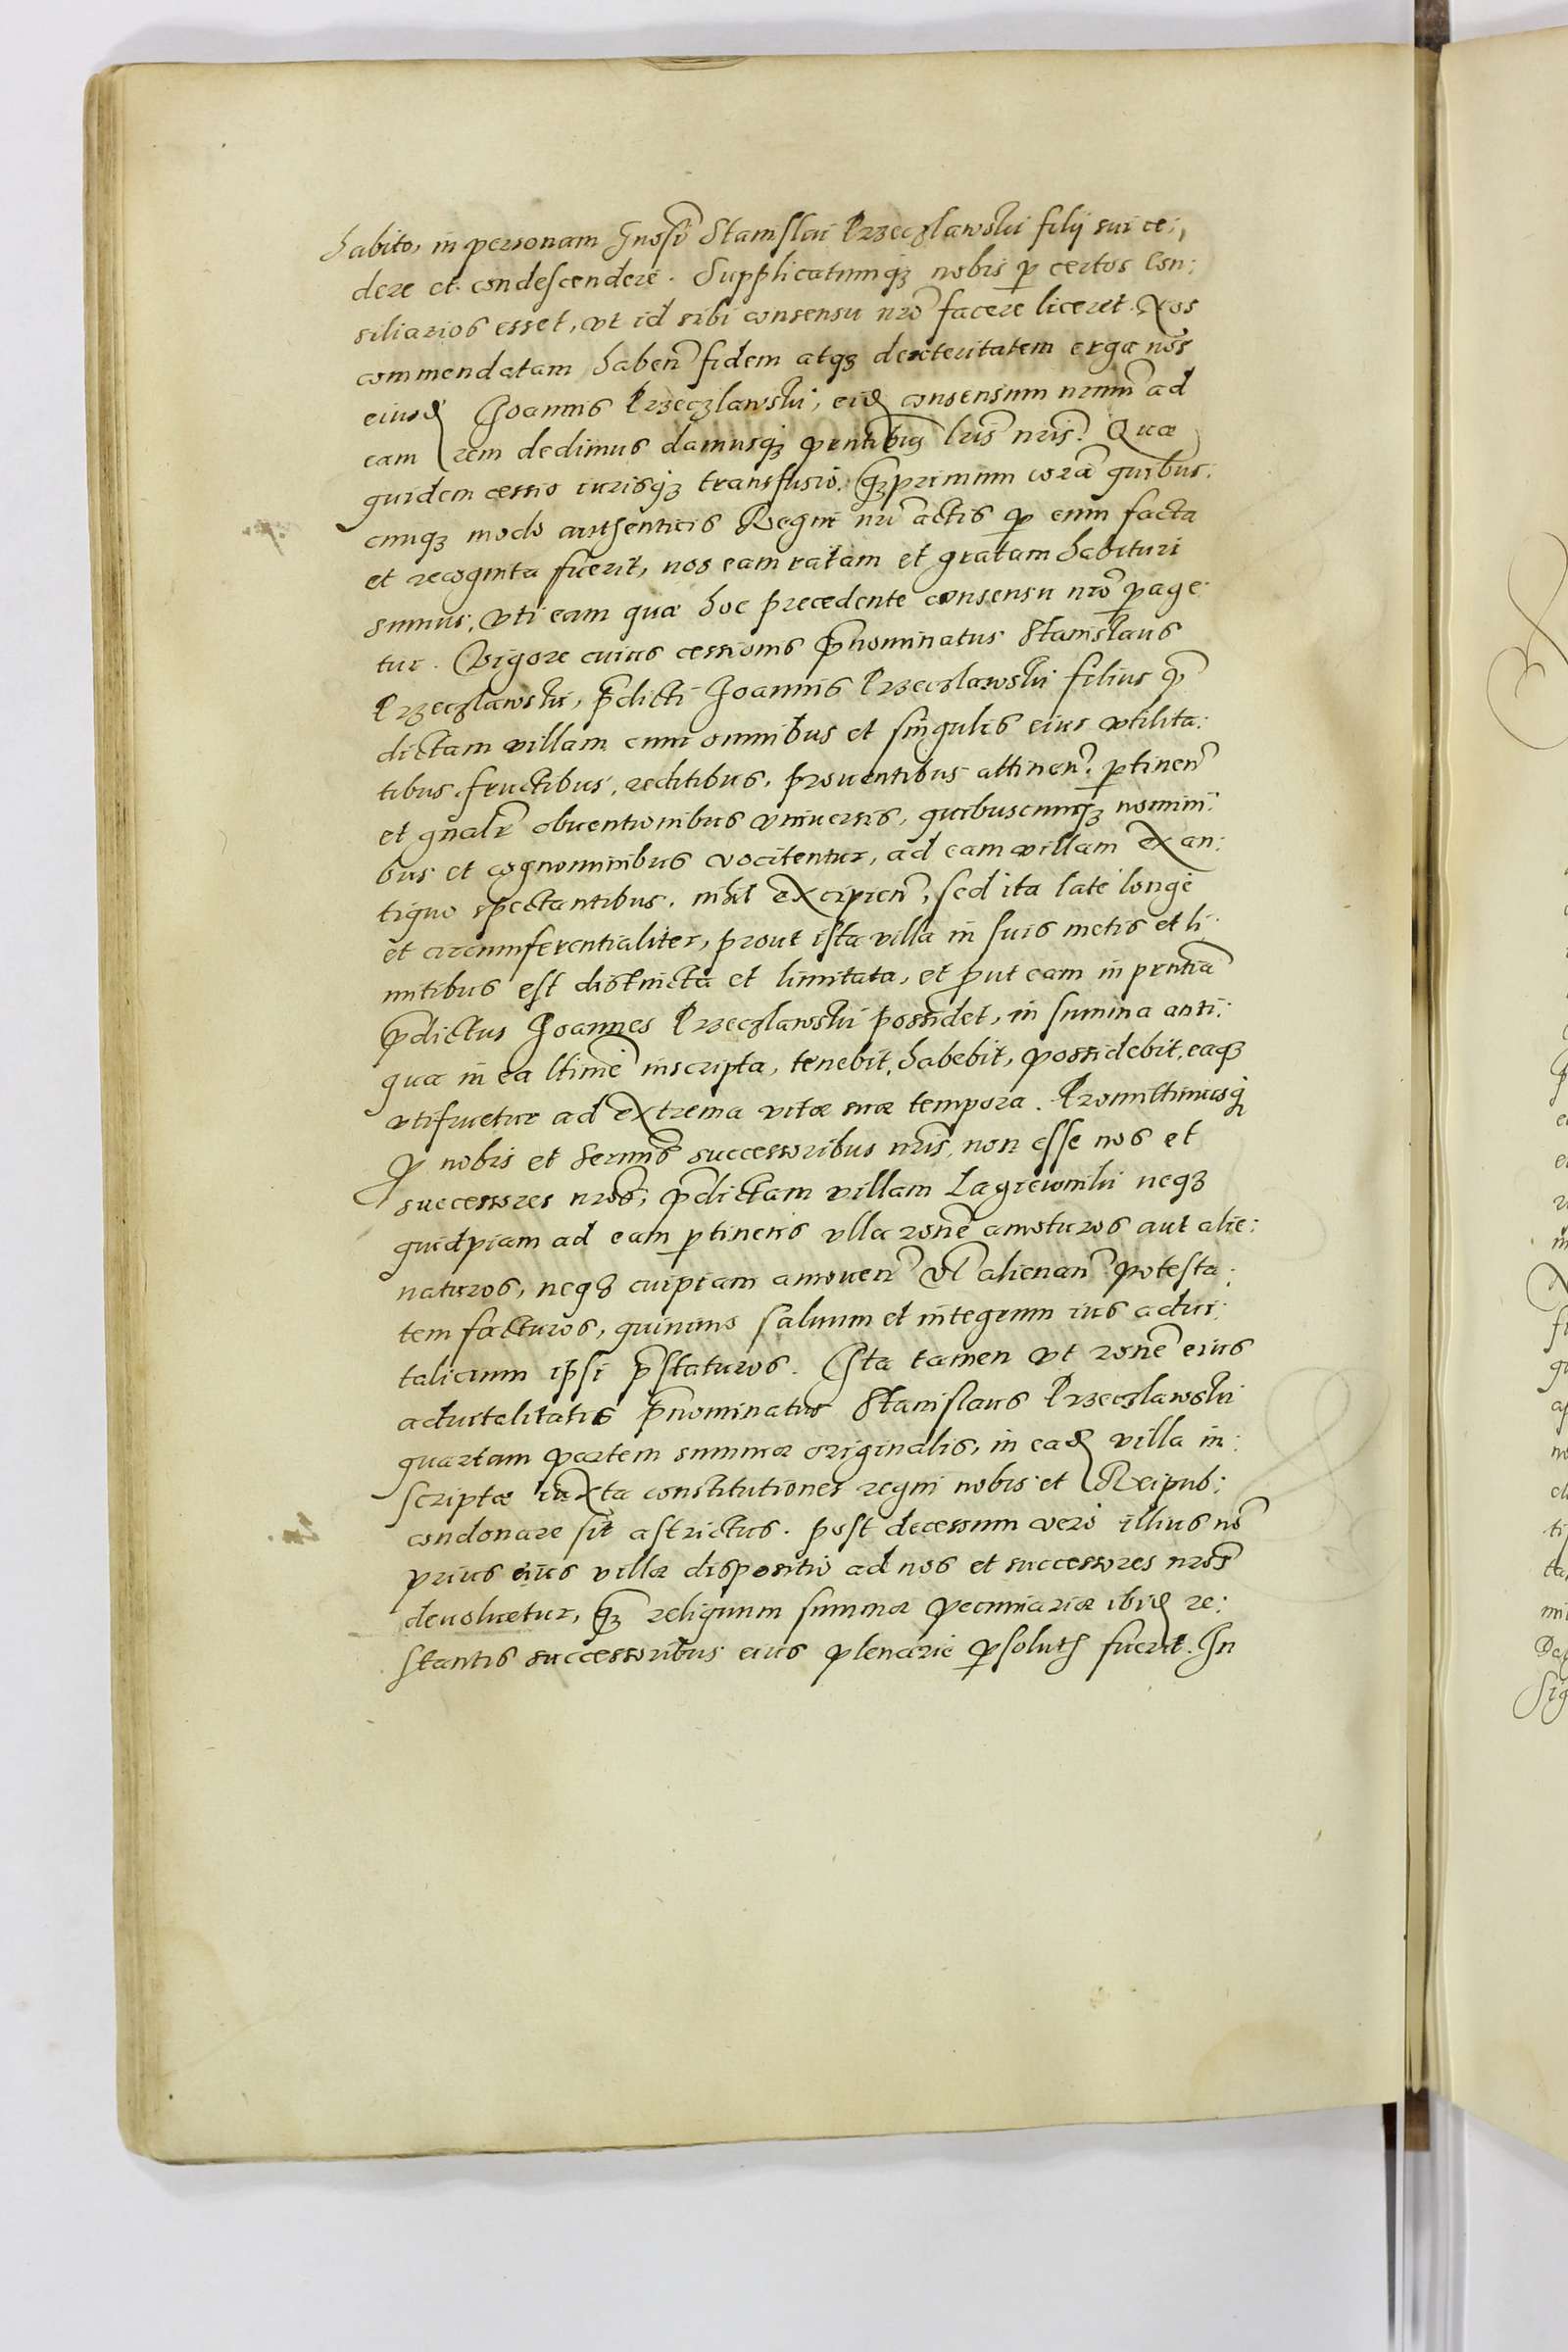 habito, in personam Gnosi Stanislai Przeczlawski filij sui ce:
dere et condescendere. Supplicatumqȝ nobis ꝑ certos Con:
siliarios esset, vt id sibi consensu nr̃o facere liceret. Nos
commendatam haben̄ fidem atqȝ dexteritatem erga nos
eiusd Joannis Przeczlawski, eid consensum nr̃um ad
eam rem dedimus damusqȝ pn̄tibus lr̃is nr̃is. Quæ
quidem cessio iurisqȝ transfusio. qȝprimum corā quibus:
cunqȝ modo authenticis Regni nr̃i actis ꝑ eum facta
et recognita fuerit, nos eam ratam et gratam habituri
sumus, vti eam quæ hoc precedente consensu nr̃o ꝑage:
tur. Vigore cuius cessionis p̄nominatus Stanislaus
Przeczlawski, p̄dicti Joannis Przeczlawski filius p̄
dictam villam cum omnibus et singulis eius vtilita:
tibus, fructibus, reditibus, prouentibus attinen̄. ꝑtinen̄
et gn̄alr̄ obuentionibus vniuersis, quibuscunqȝ nomini:
bus et cognominibus vocitentur, ad eam villam ex an:
tiquo spectantibus, nihil excipien̄, sed ita late longe
et circumferentialiter, prout ista villa in suis metis et li:
mitibus est distincta et limitata, et ꝓut eam in pn̄tia
p̄dictus Joannes Przeczlawski possidet, in summa anti:
qua in ea ltime inscripta, tenebit, habebit, possidebit, eaqȝ
vtifruetur ad extrema vitæ suæ tempora. Promittimusqȝ
ꝓ nobis et Sermis successoribus nr̃is, non esse nos et
successores nr̃os, p̄dictam villam Lagiewniki neqȝ
quidpiam ad eam ꝑtinens vlla ron̄e amoturos aut alie:
naturos, neqȝ cuipiam amouen̄ vl̄ alienan̄ potesta:
tem facturos, quinimo saluum et integrum ius adui:
talicium ipsi p̄staturos. Ita tamen vt ron̄e eius
aduitalitatis p̄nominatus Stanislaus Przeczlawski
quartam partem summæ originalis, in ead villa in:
scriptæ iuxta constitutiones regni nobis et Reipub:
condonare sit astrictus. post decessum vero illius nō
prius eius villæ dispositio ad nos et successores nr̃os
deuoluetur, qȝ reliquum summæ pecuniariæ ibid re:
stantis successoribus eius plenarie ꝑsolut fuerit. In